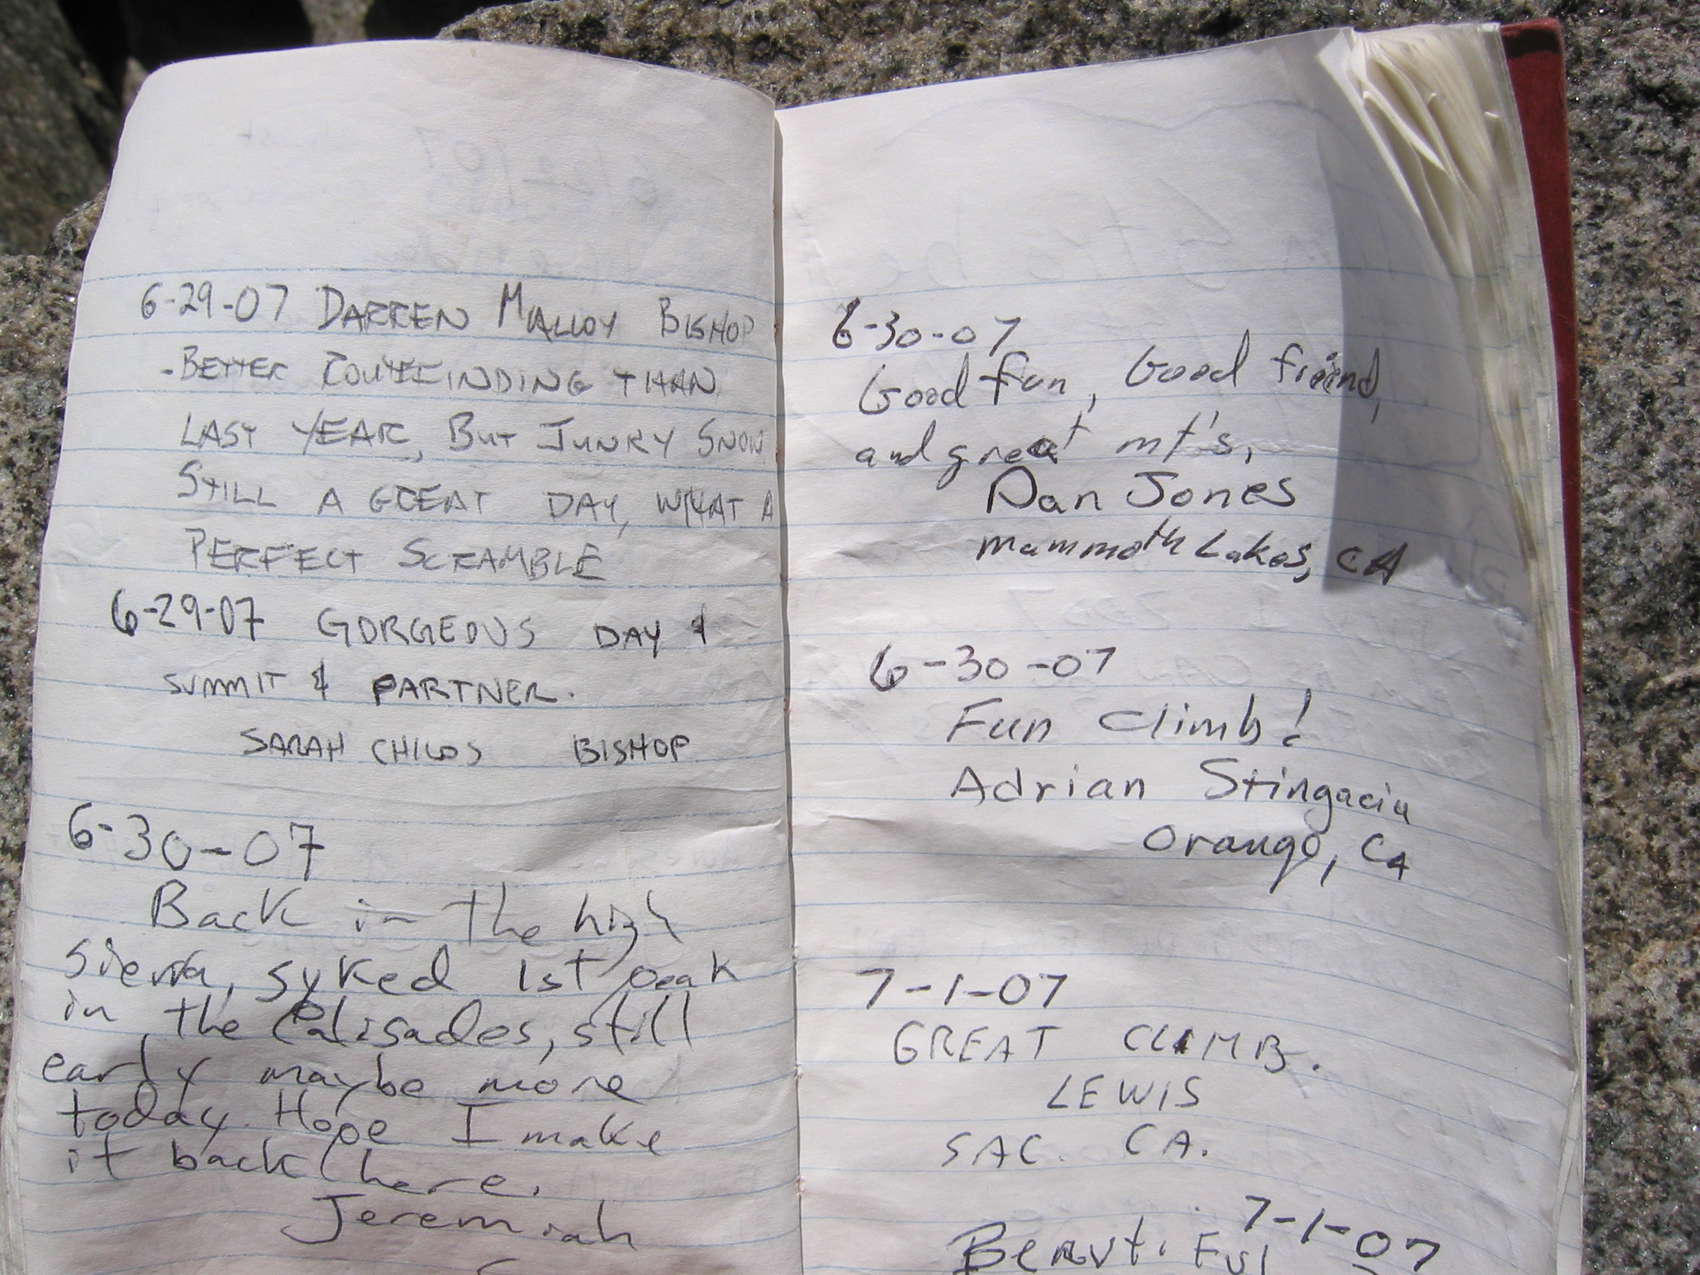 6-29-07 DARREN MALLOY BISHOP
-BETTER ROUTEFINDING THAN
LAST YEAR, BUT JUNKY SNOW
STILL A GREAT DAY, WHAT A
PERFECT SCRAMBLE
6-29-07 GORGEOUS DAY &
SUMMIT & PARTNER.
SARAH CHILDS BISHOP
6-30-07
Back in the high
Sierra, syked 1st peak
in the Palisades, still
early maybe more
today. Hope I make
it back here.
Jeremiah
6-30-07
Good fun, Good friend,
and great mt's,
Dan Jones
Mammoth Lakes, CA
6-30-07
Fun Climb!
Adrian Stingaciu
Orange, CA
7-1-07
GREAT CLIMB.
LEWIS
SAC. CA.
7-1-07
Beautiful